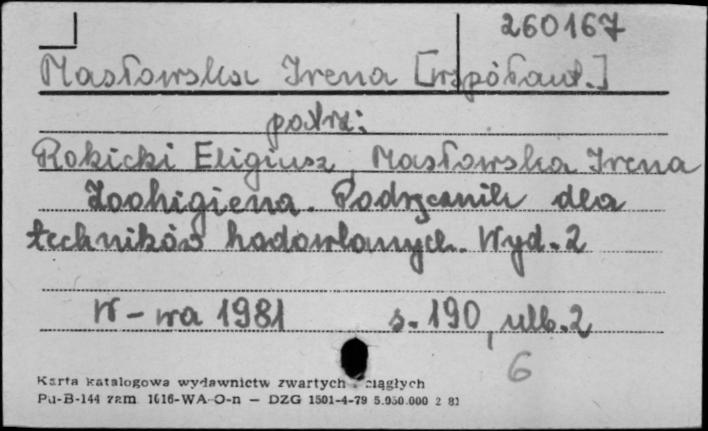 260167
Masłowska Irena [współaut.]
patrz:
Rokicki Eligiusz, Masłowska Irena
Zoohigiena. Podręcznik dla
techników hodowlanych. Wyd. 2
W-wa 1981 s. 190, ulb. 2
6
Karta katalogowa wydawnictw zwartych i ciągłych
Pu-B-144 zam. 1616-WA-O-n — DZG 1501-4-79 5.050.000 2 81